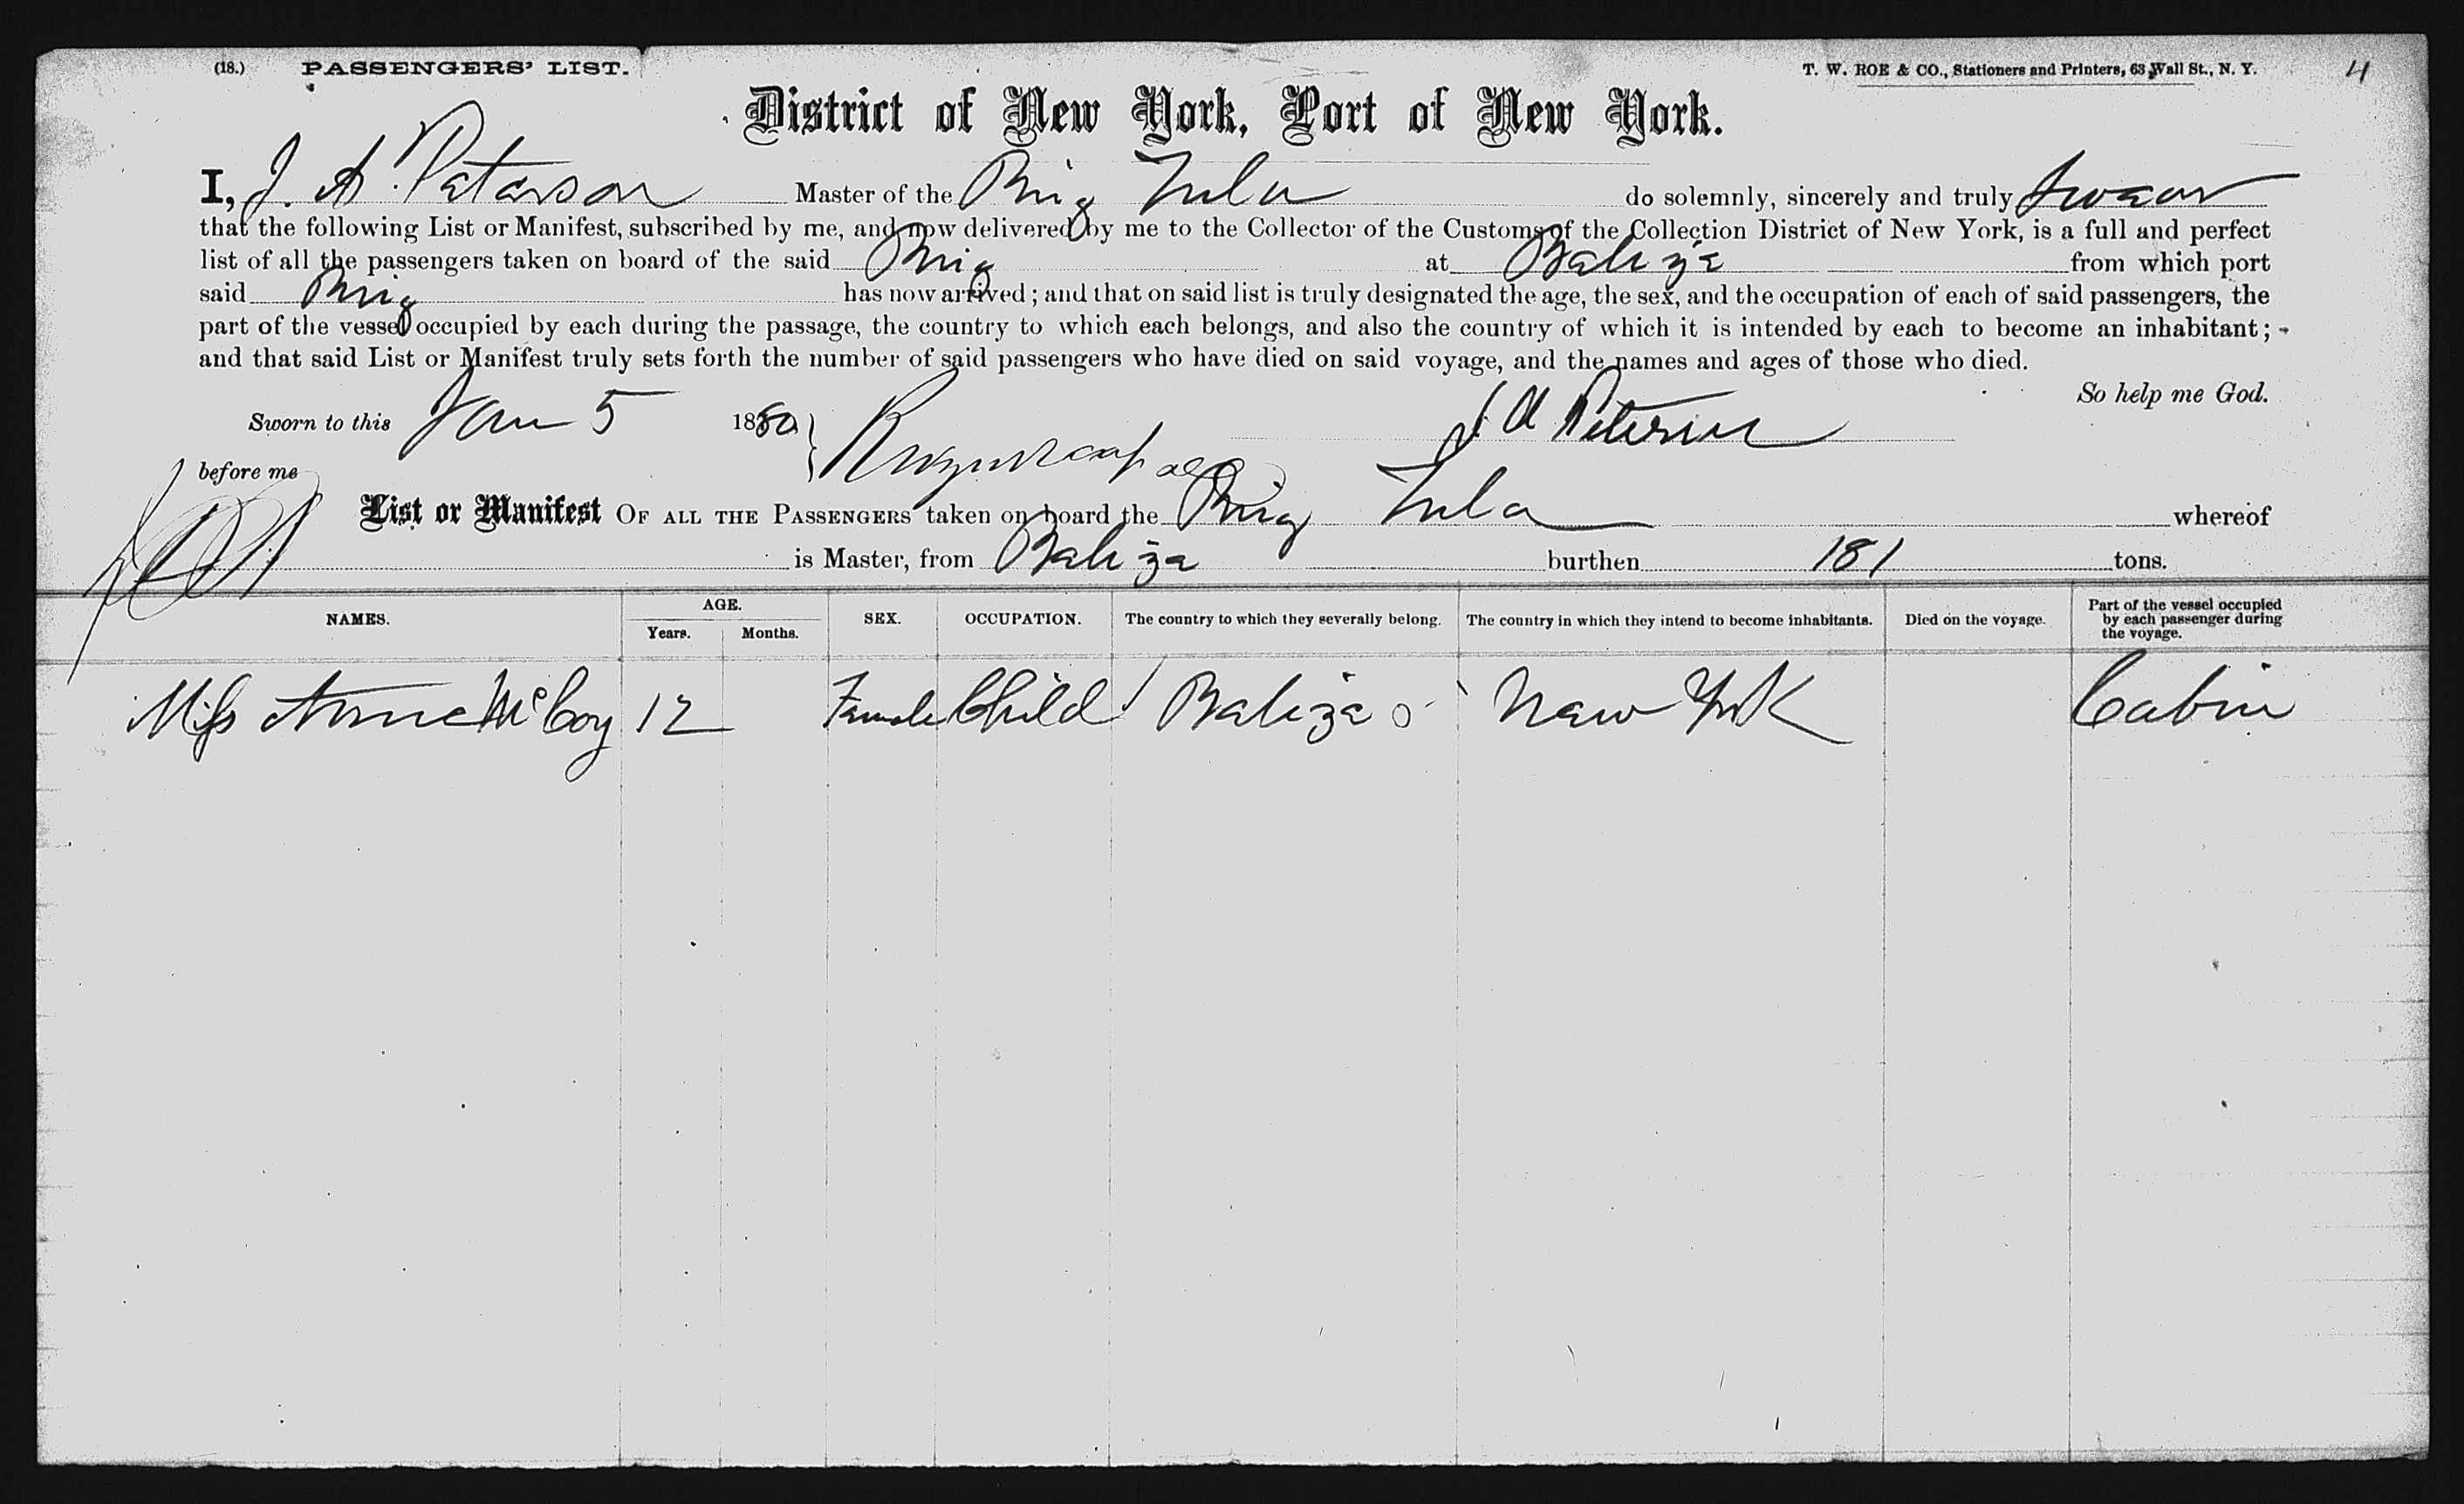 (18.) PASSENGERS' LIST. T. W. ROE & CO., Stationers and Printers, 63 Wall St., N. Y. 4
District of New York, Port of New York.
I, J. A. Paterson Master of the Brig Tula do solemnly, sincerely and truly Swear
that the following List or Manifest, subscribed by me, and now delivered by me to the Collector of the Customs of the Collection District of New York, is a full and perfect
list of all the passengers taken on board of the said Brig at Balize from which port
said Brig has now arrived; and that on said list is truly designated the age, the sex, and the occupation of each of said passengers, the
part of the vessel occupied by each during the passage, the country to which each belongs, and also the country of which it is intended by each to become an inhabitant;
and that said List or Manifest truly sets forth the number of said passengers who have died on said voyage, and the names and ages of those who died.
So help me God.
Sworn to this Jan 5 1880 J A Peterson
before me
List or Manifest OF ALL THE PASSENGERS taken on board the Brig Tula whereof
is Master, from Balize burthen 181 tons.
NAMES. AGE. Years. Months. SEX. OCCUPATION. The country to which they severally belong. The country in which they intend to become inhabitants. Died on the voyage. Part of the vessel occupied by each passenger during the voyage.
Miss Annie McCoy 12 Female Child Balize New York Cabin